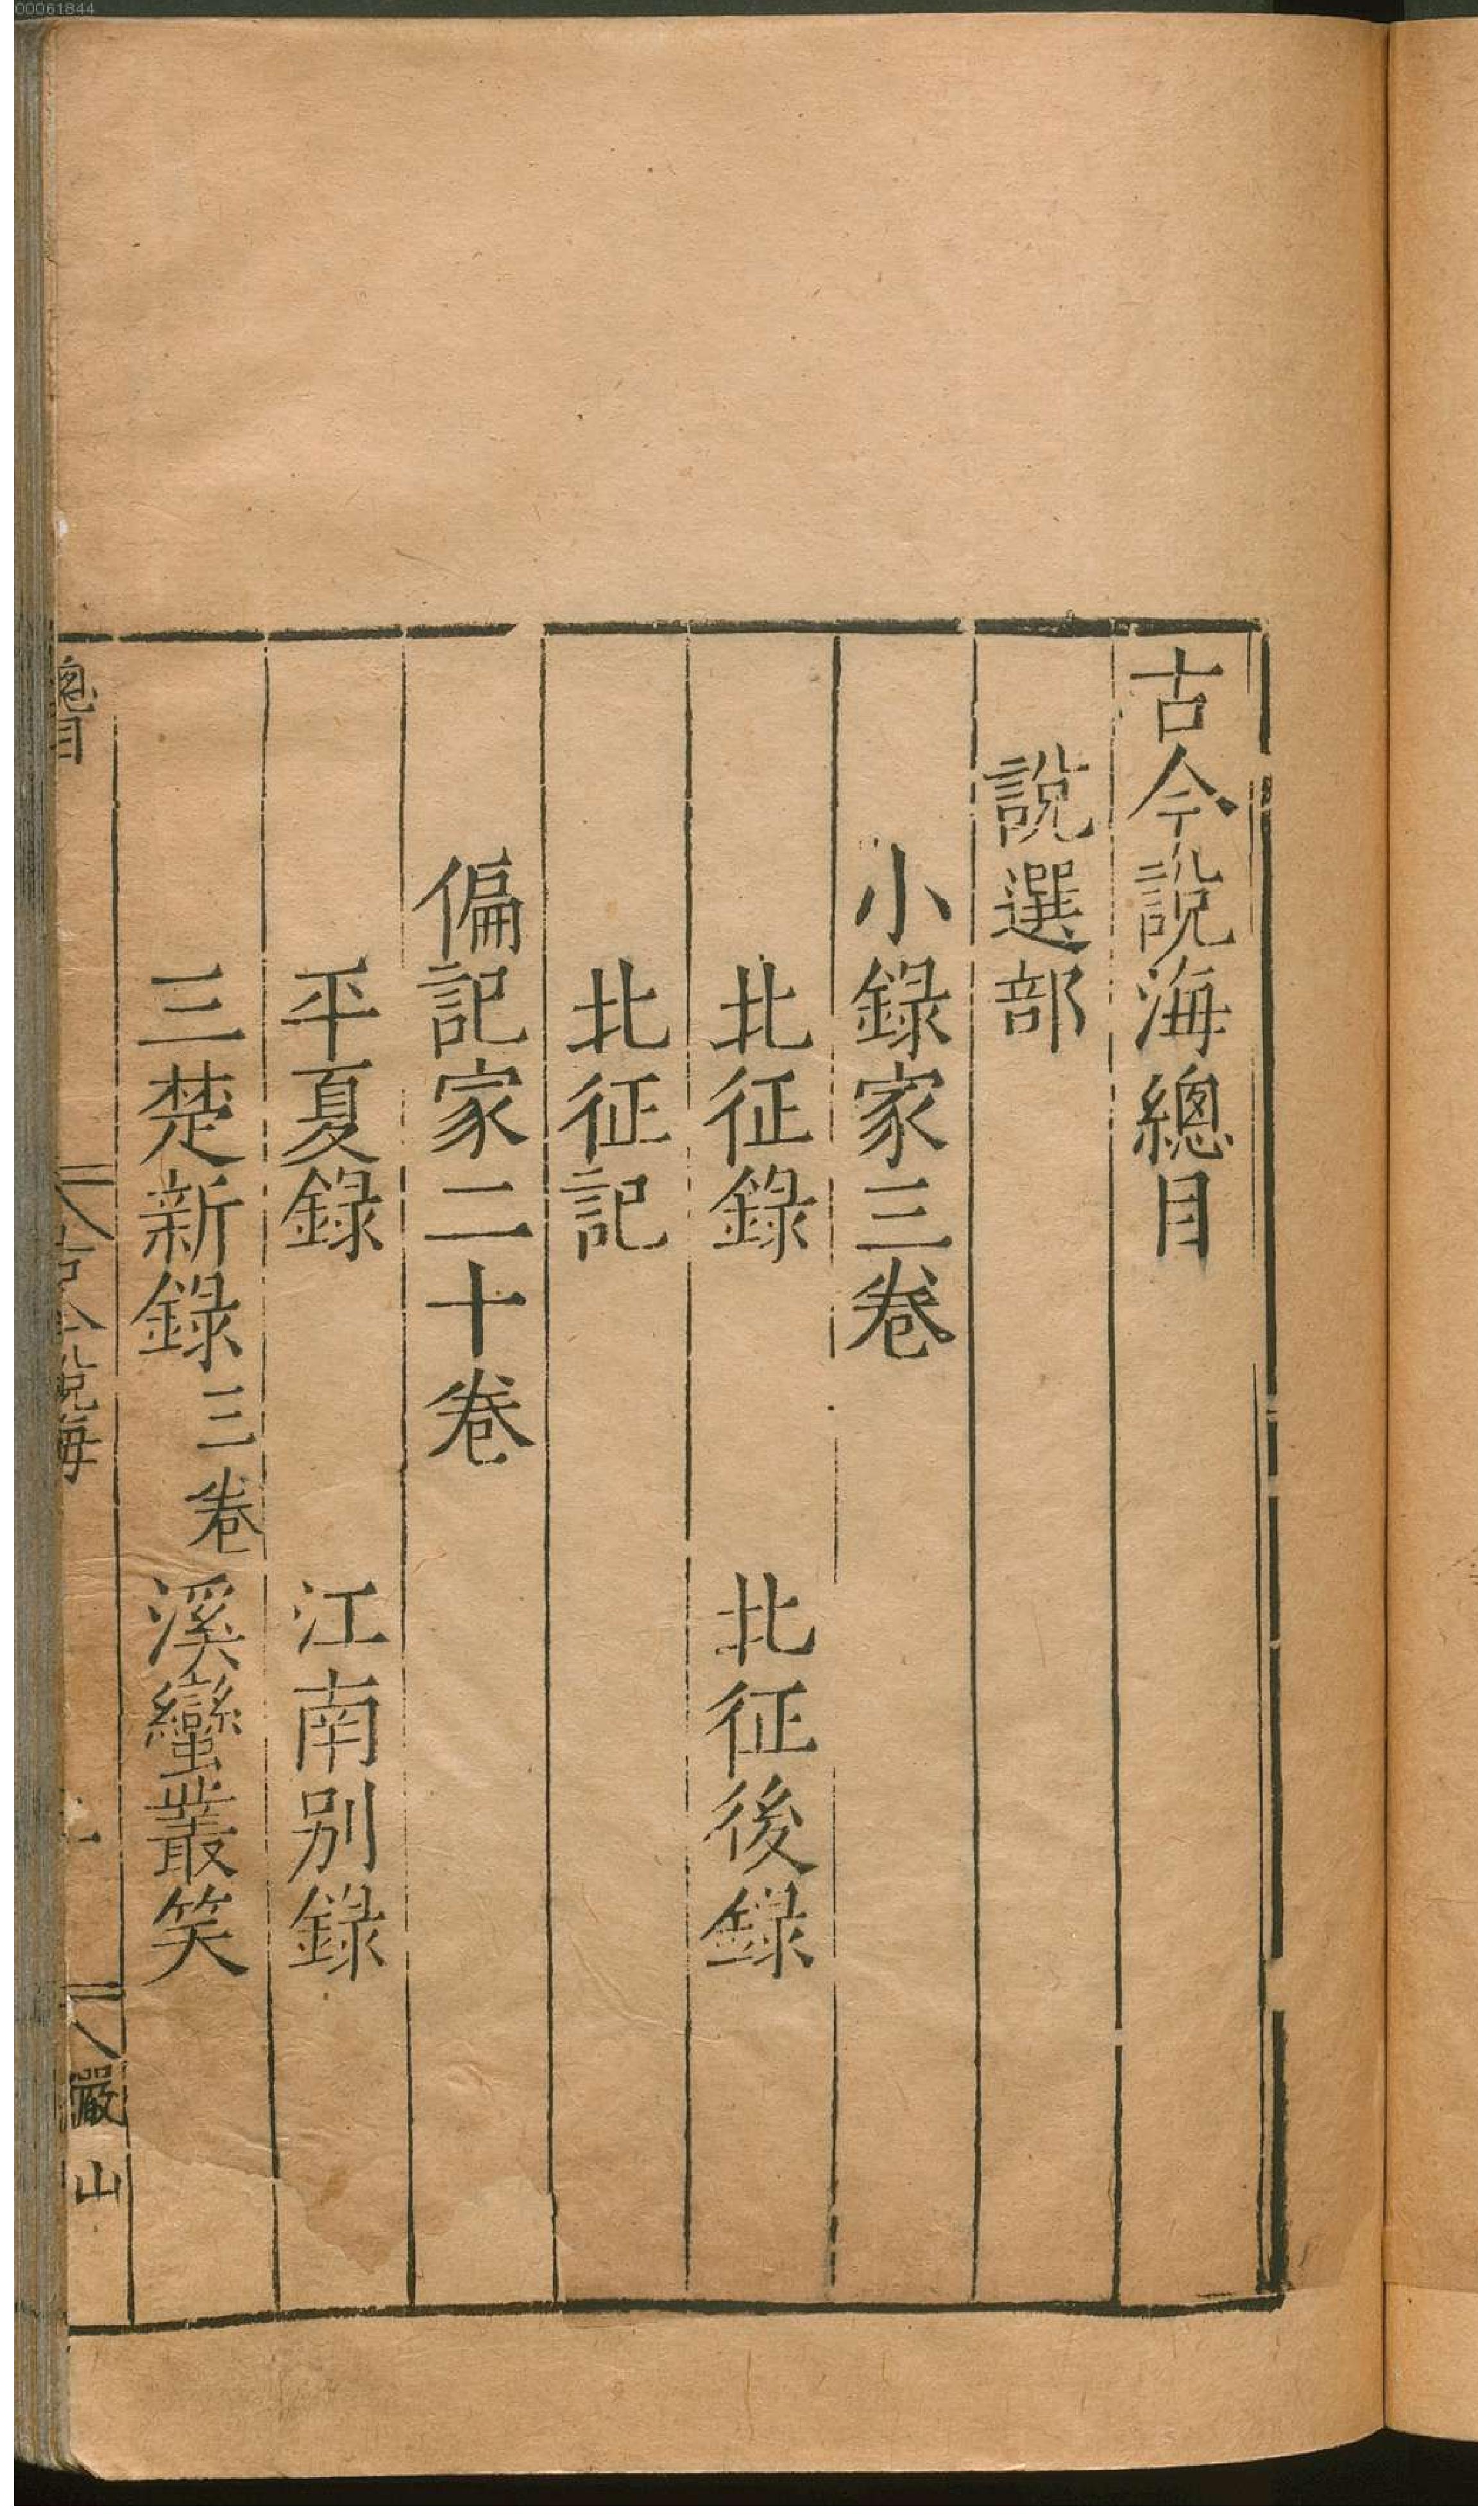 00061844
古今說海總目
說選部
小錄家三卷
北征錄 北征後錄
北征記
偏記家二十卷
平夏錄 江南別錄
三楚新錄三卷 溪蠻叢笑
總目 古今說海 一 儼山